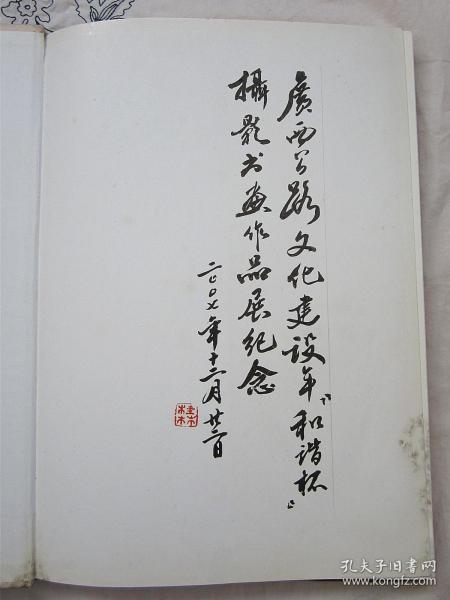 廣西公路文化建设年『和谐杯』
攝影书画作品展纪念
二〇〇七年十二月廿二日
孔夫子旧书网
www.kongfz.com